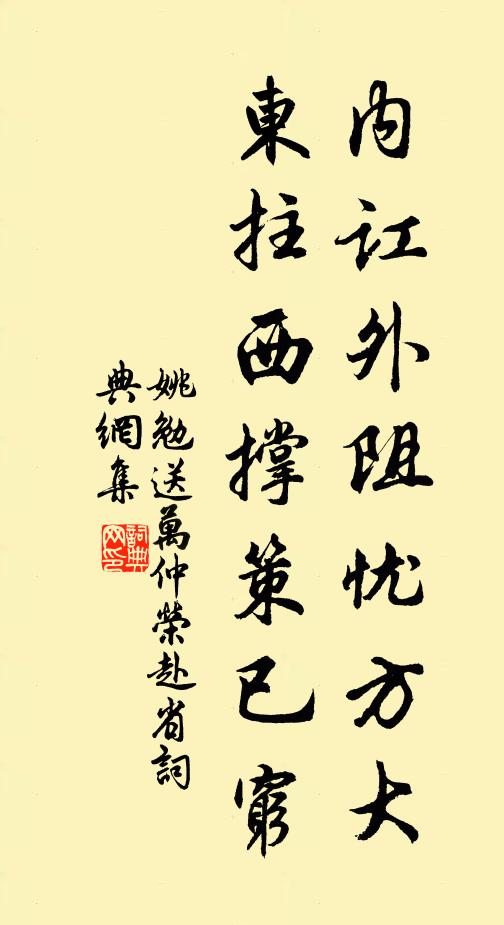 内讧外阻忧方大
東拄西撐策已窮
姚勉送萬仲榮赴省詞
典網集
詞典網印